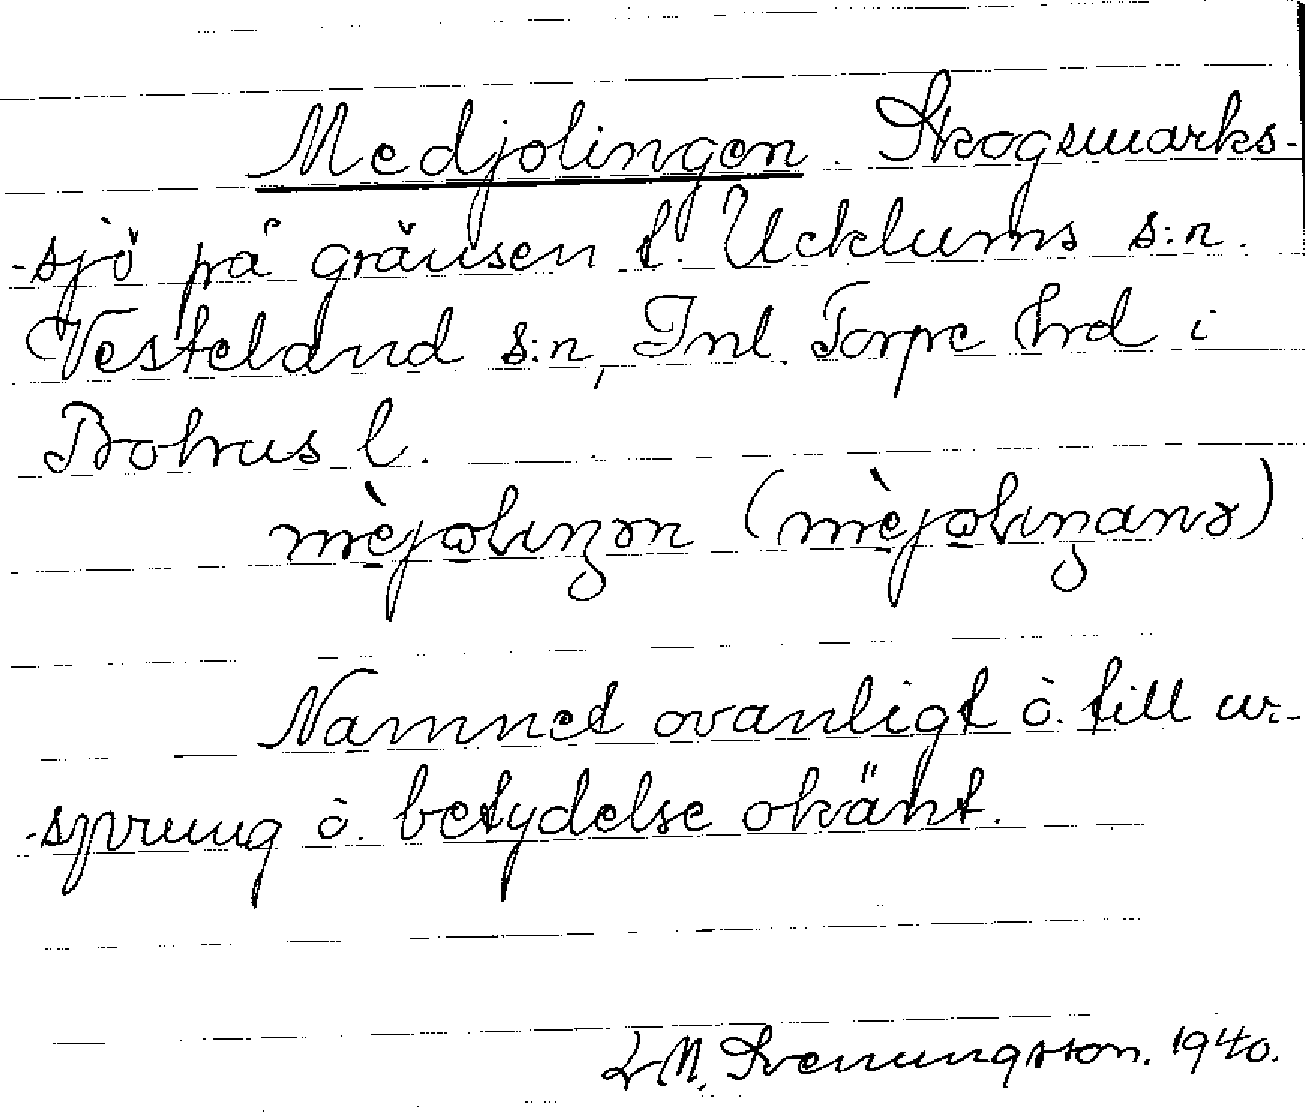 Medjolingen. Skogsmarks-
-sjö på gränsen t. Ucklums s:n.
Vesteland s:n, Inl. Torpe hrd i
Bohus l.
mèjolıŋən (mèjolıŋanə)
Namnet ovanligt o. till ur-
-sprung o. betydelse okänt.
Svenungsson. 1940.